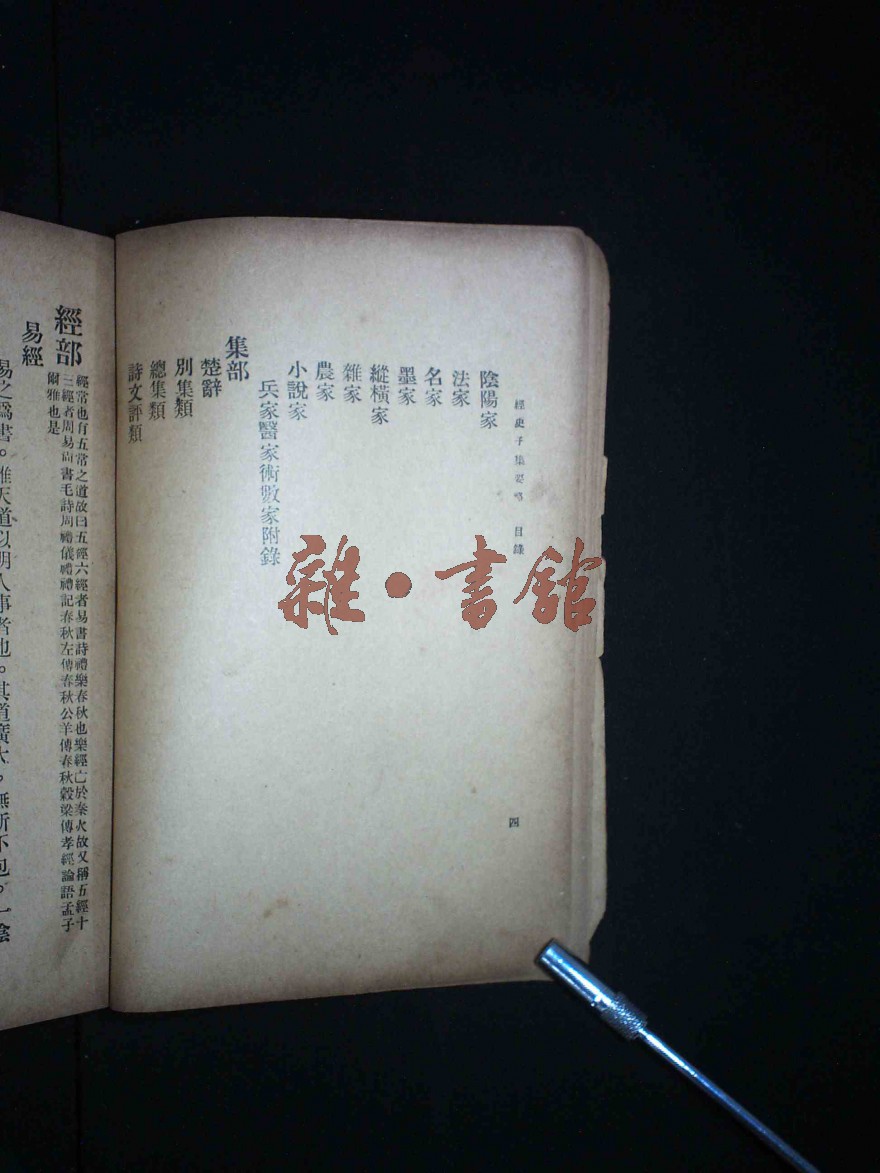 經史子集要略 目錄
陰陽家
法家
名家
墨家
縱橫家
雜家
農家
小說家
兵家醫家術數家附錄
集部
楚辭
別集類
總集類
詩文評類
四
雜·書館
經部
經常也有五常之道故曰五經六經者易書詩禮樂春秋也樂經亡於秦火故又稱五經十
三經者周易尚書毛詩周禮儀禮禮記春秋左傳春秋公羊傳春秋穀梁傳孝經論語孟子
爾雅也是
易經
易之爲書。推天道以明人事者也。其道廣大。無所不包。一陰